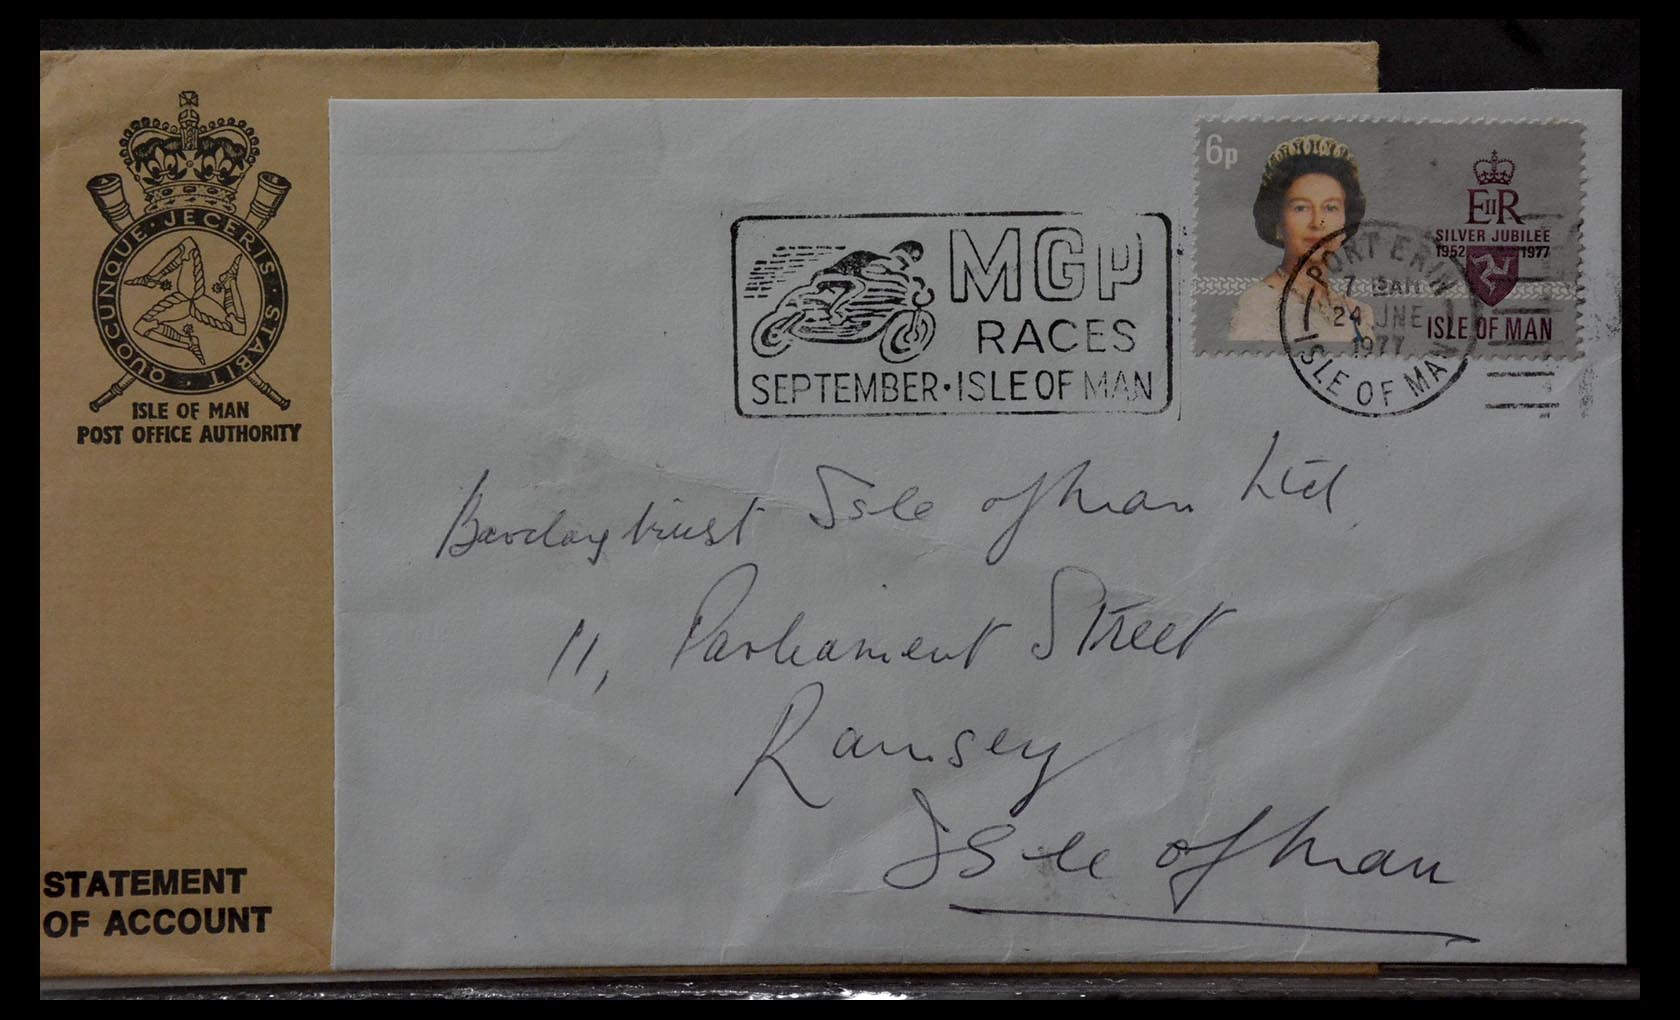 QUOCUNQUE · JECERIS · STABIT ·
ISLE OF MAN
POST OFFICE AUTHORITY
STATEMENT
OF ACCOUNT
MGP
RACES
SEPTEMBER · ISLE OF MAN
6p
EIIR
SILVER JUBILEE
1952 1977
ISLE OF MAN
PORT ERIN
24 JNE
1977
ISLE OF MAN
Barclaytrust Isle of Man Ltd
11, Parliament Street
Ramsey
Isle of Man